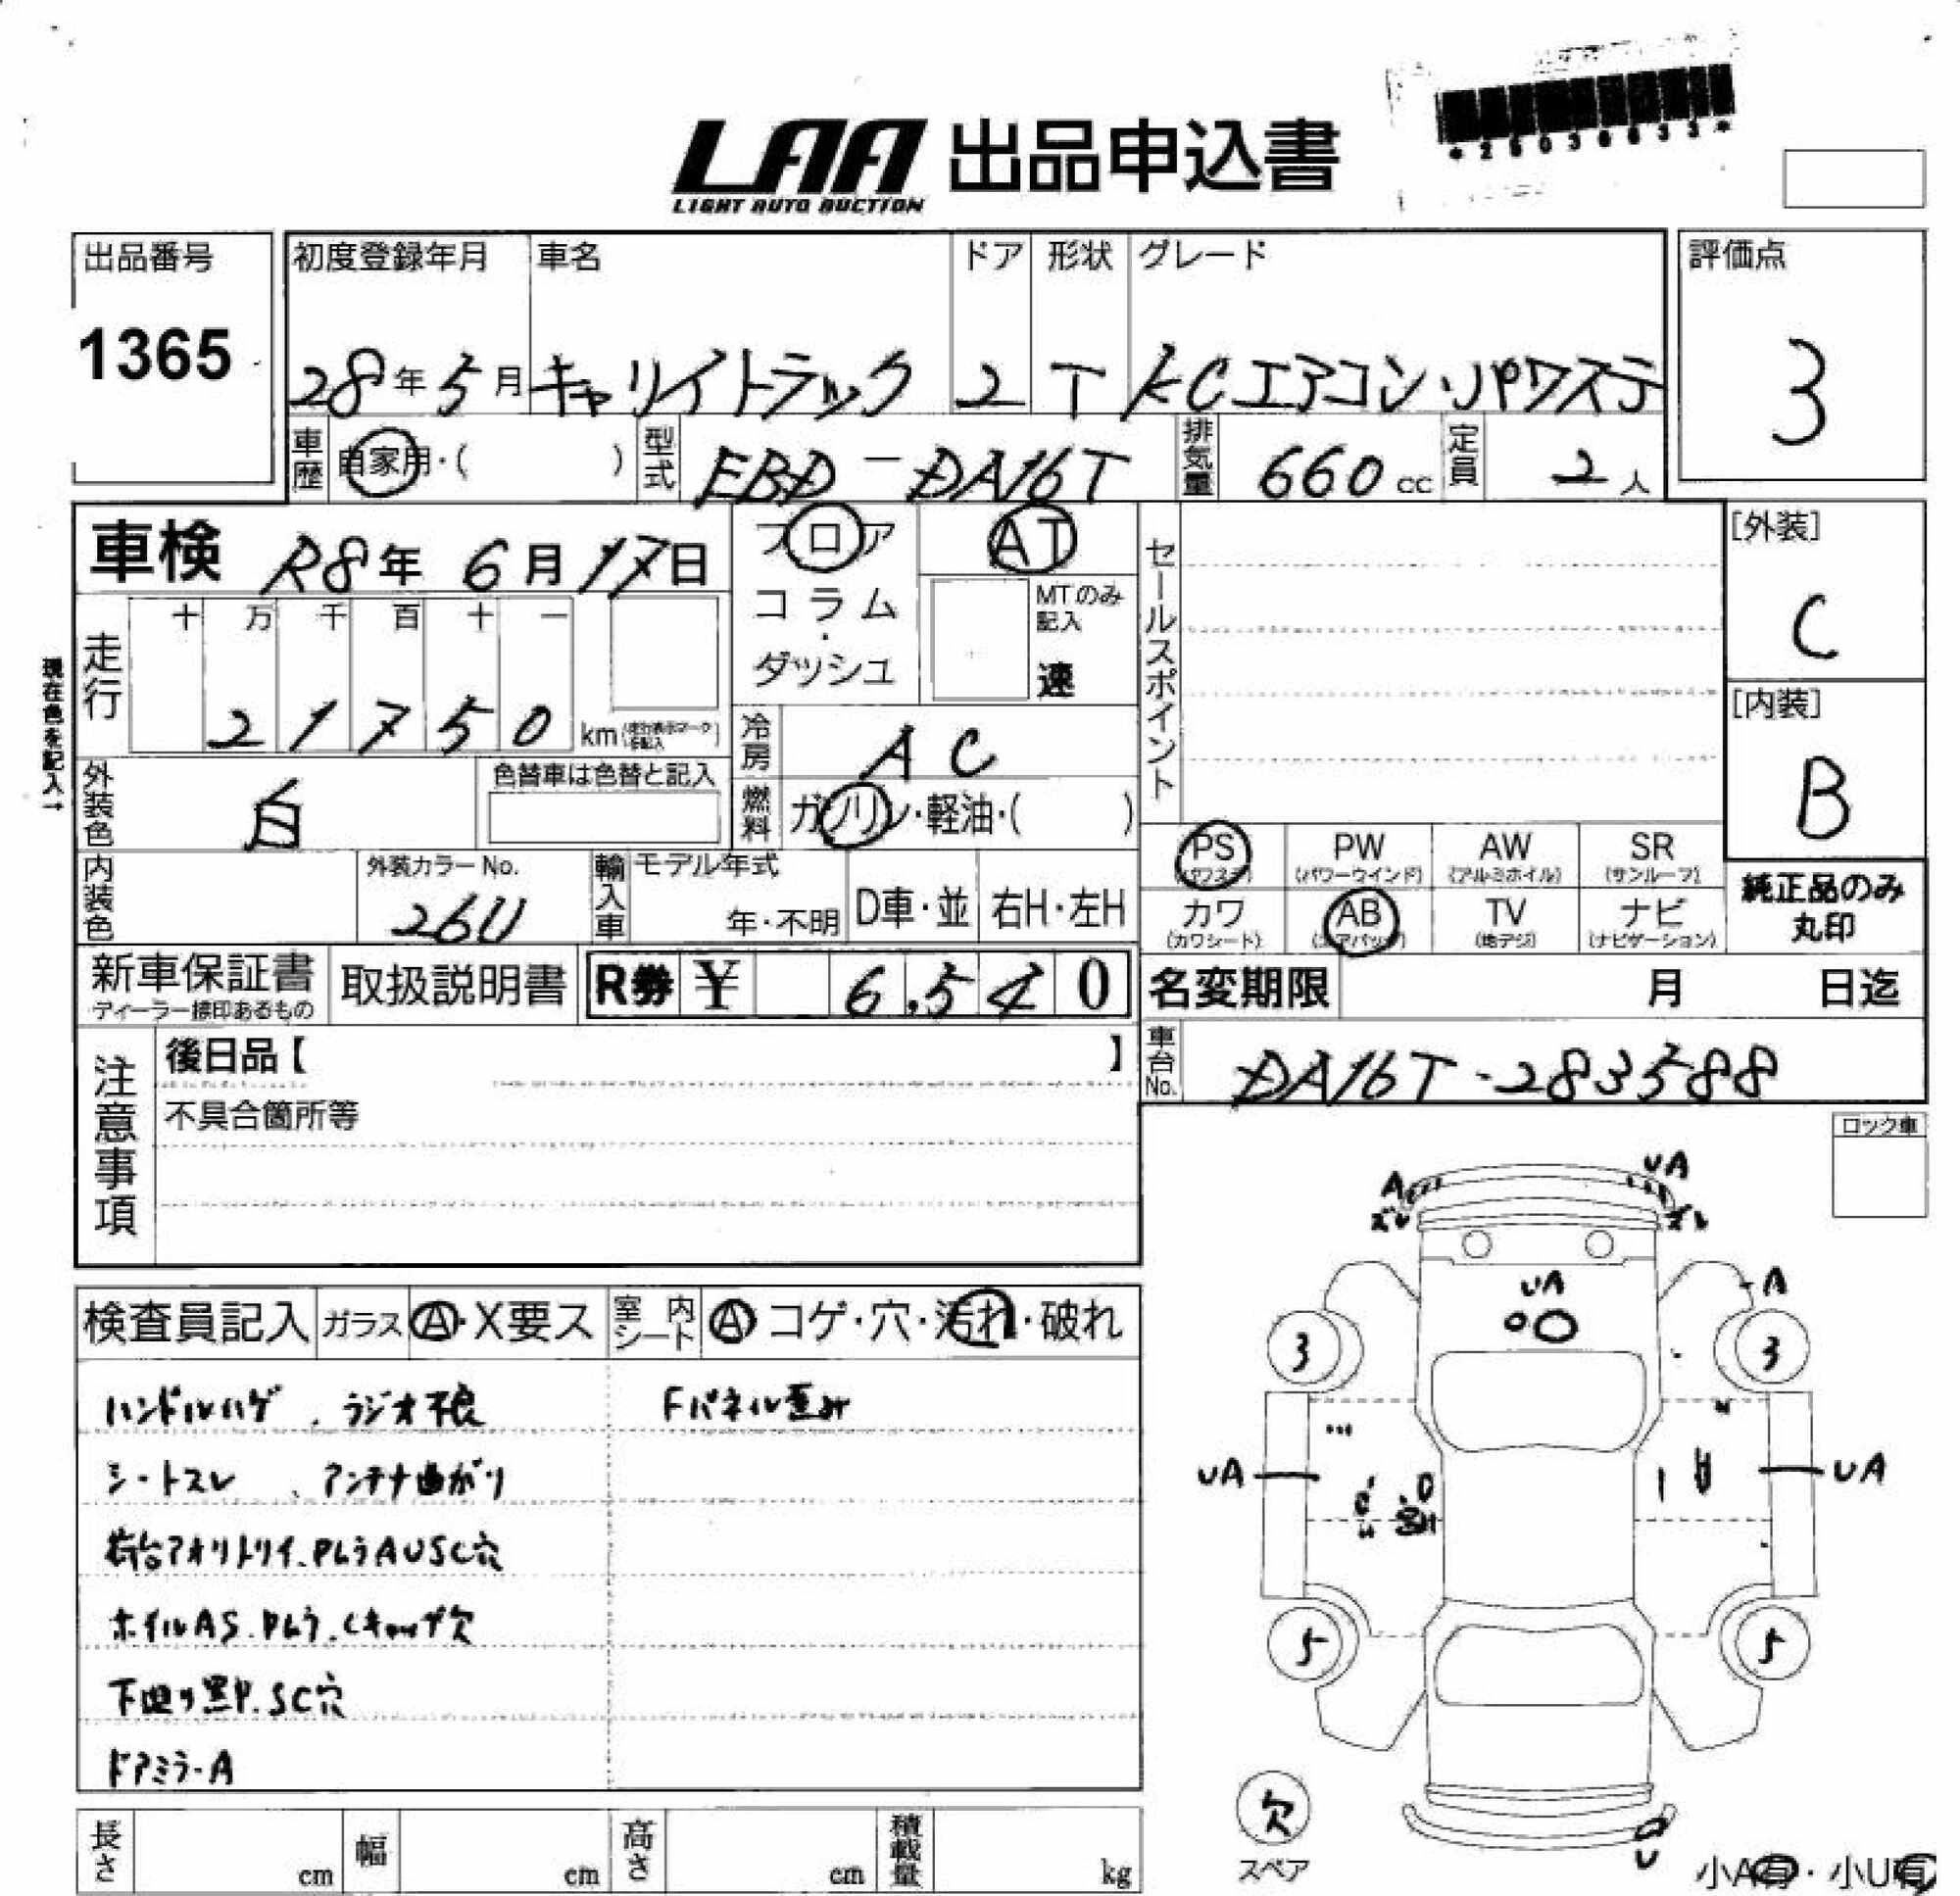 LAA 出品申込書
LIGHT AUTO AUCTION
出品番号
1365
初度登録年月 車名 ドア 形状 グレード
28年5月 キャリイトラック 2 T KCエアコン・パワステ
評価点
3
車歴 自家用・( ) 型式 EBD-DA16T 排気量 660cc 定員 2人
車検 R8年 6月 17日
フロア
コラム
・
ダッシュ
AT
MTのみ
記入
速
セールスポイント
[外装]
C
[内装]
B
現在色を記入→
走行 十 万 千 百 十 一
2 1 7 5 0 km
冷房 AC
外装色 白 色替車は色替と記入
燃料 ガソリン・軽油・( )
PS PW AW SR
(パワステ) (パワーウインド) (アルミホイル) (サンルーフ)
カワ AB TV ナビ
(カワシート) (エアバッグ) (地デジ) (ナビゲーション)
純正品のみ
丸印
内装色 外装カラーNo. 26U 輸入車 モデル年式 年・不明 D車・並 右H・左H
新車保証書 取扱説明書 R券 ¥ 6,540
ディーラー捺印あるもの
名変期限 月 日迄
車台No. DA16T-283588
注意事項
後日品【 】
不具合箇所等
ロック車
検査員記入 ガラス A・X要ス 室内シート A コゲ・穴・汚れ・破れ
ハンドルハゲ、ラジオ不良 Fパネル歪み
シートスレ、アンテナ曲がり
荷台アオリトリイ、PムラAUSC穴
ホイルAS.Pムラ.Cキャップ欠
下廻り黒P.SC穴
ドアミラーA
A UA
ズレ ズレ
UA
A
3 3
UA UA
5 5
欠
スペア
U
小A有・小U有
長さ cm 幅 cm 高さ cm 積載量 kg